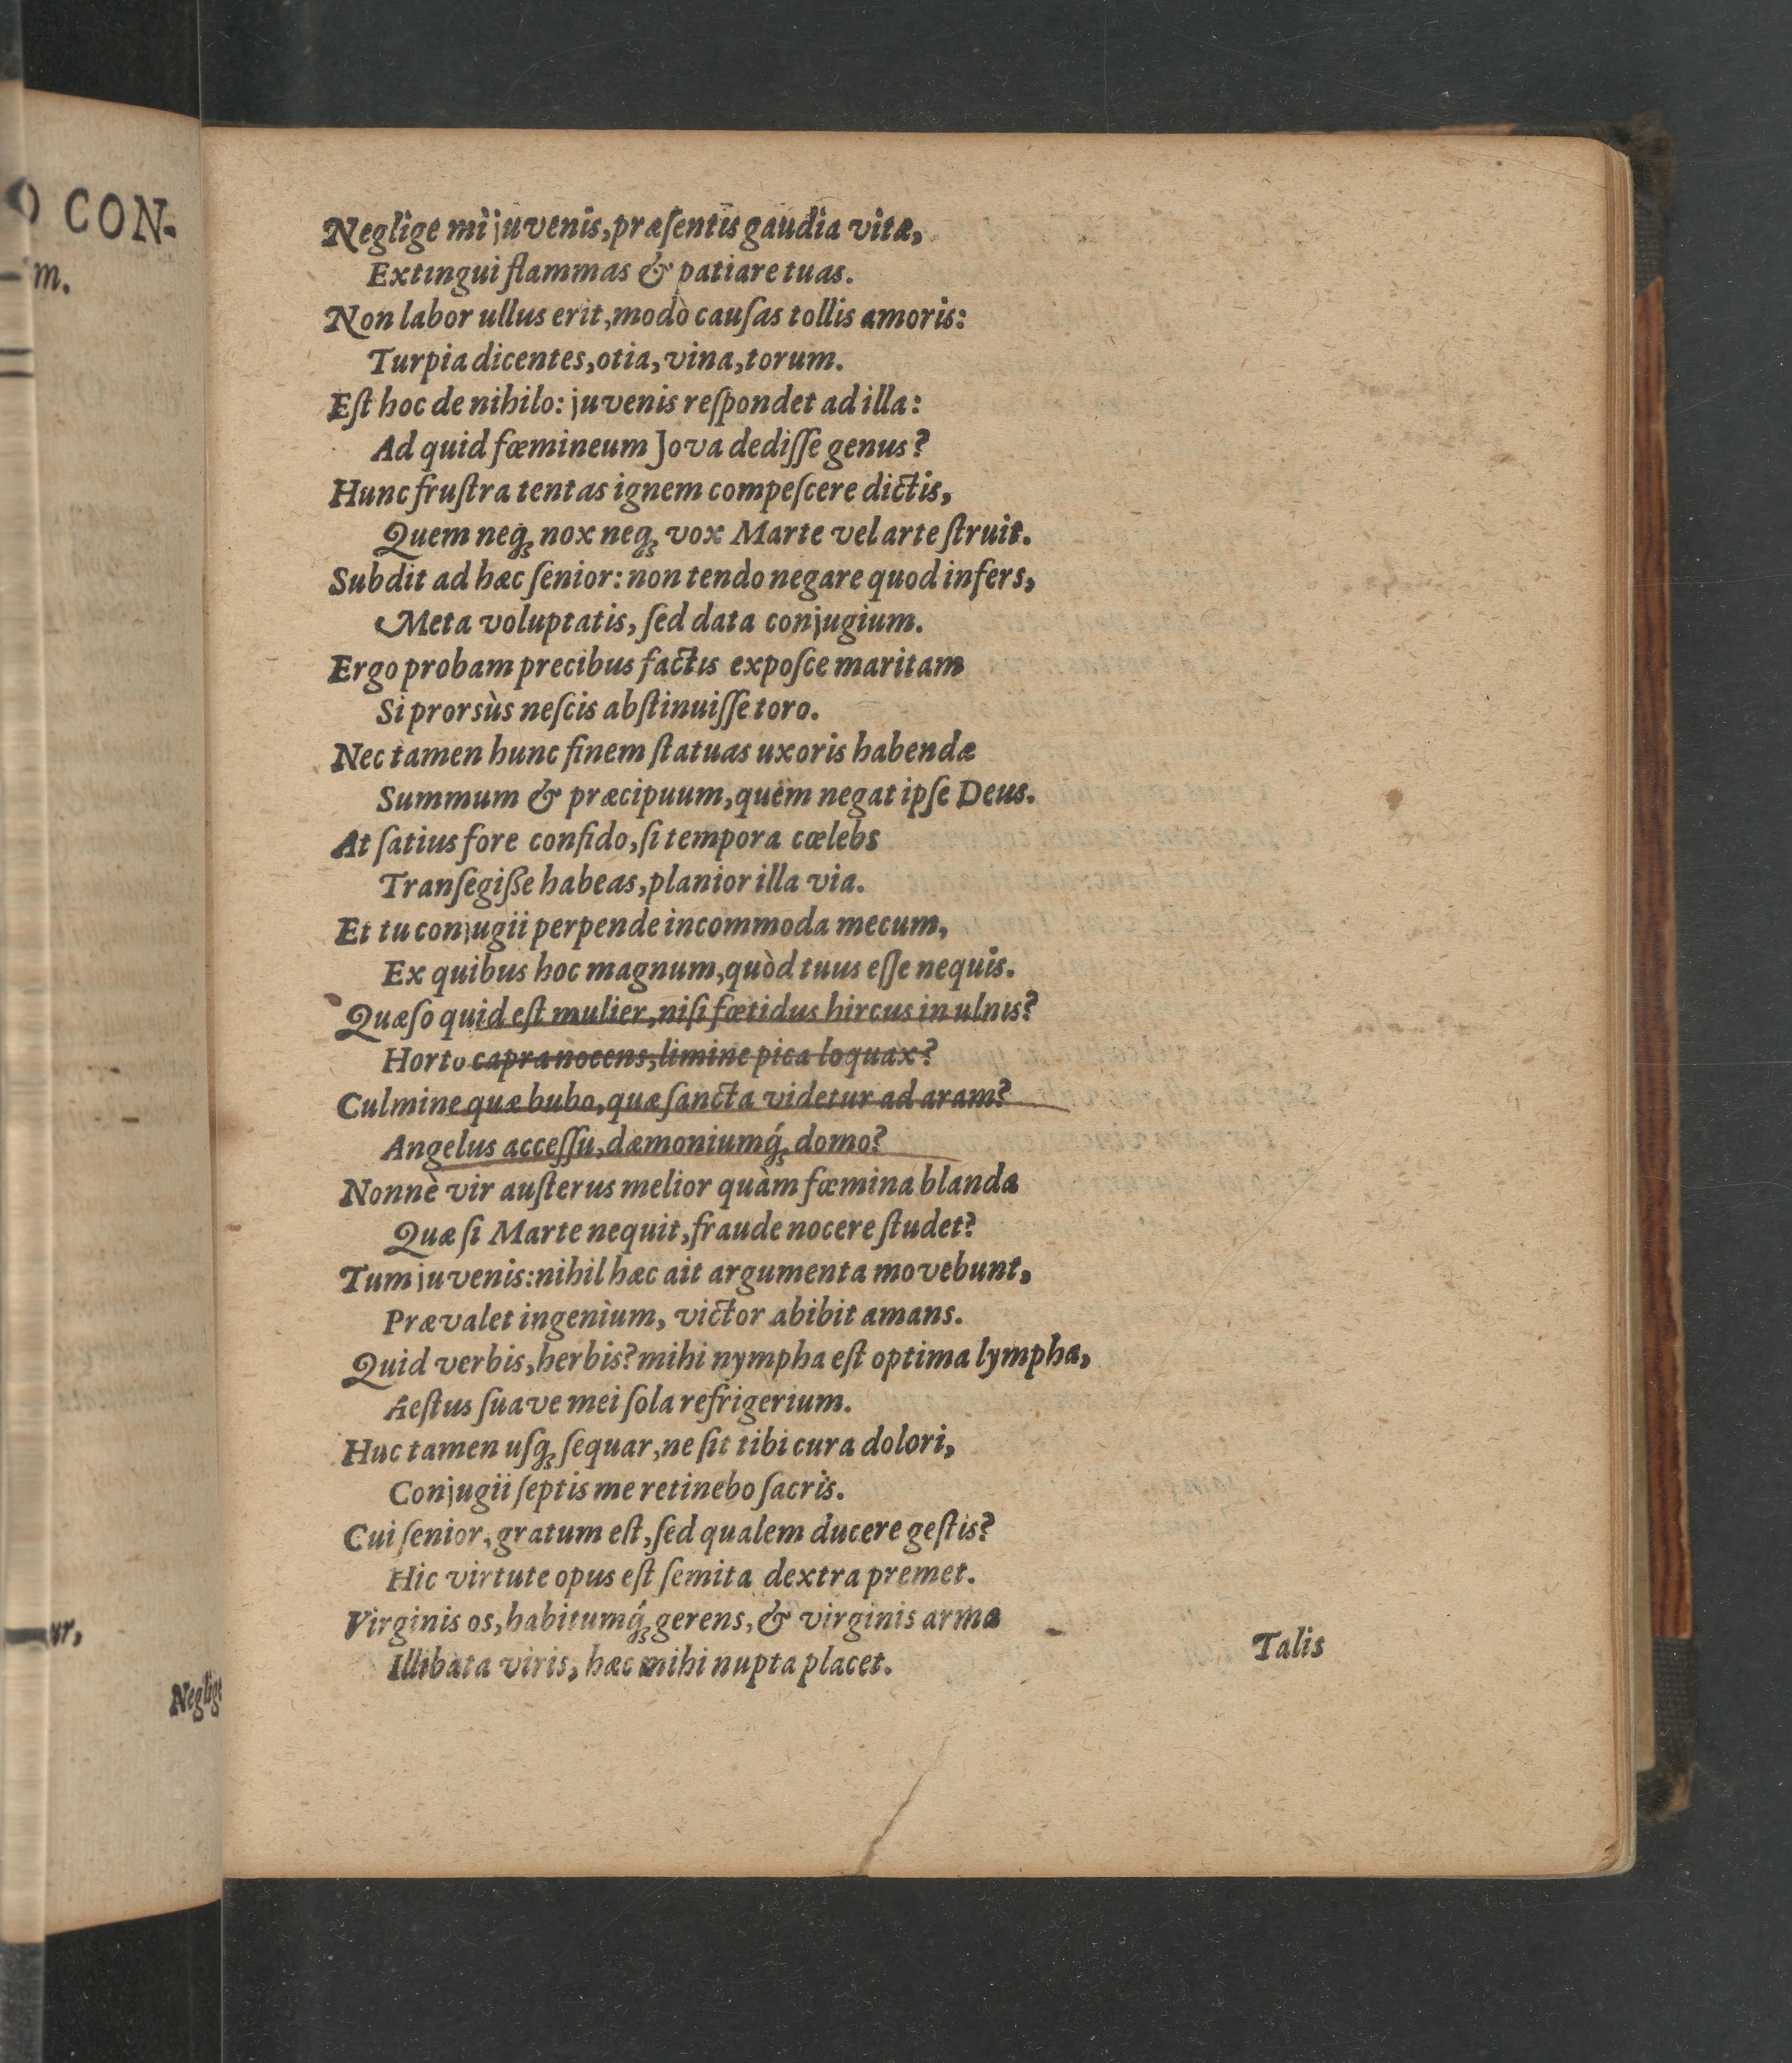 O CON-
m.
ur,
Neglige
Neglige mi juvenis, præſentis gaudia vitæ,
Extingui flammas & patiare tuas.
Non labor ullus erit, modò cauſas tollis amoris:
Turpia dicentes, otia, vina, torum.
Eſt hoc de nihilo: juvenis reſpondet ad illa:
Ad quid fœmineum Jova dediſſe genus?
Hunc fruſtra tentas ignem compeſcere dictis,
Quem neq́ꝫ nox neq́ꝫ vox Marte vel arte ſtruit.
Subdit ad hæc ſenior: non tendo negare quod infers,
Meta voluptatis, ſed data conjugium.
Ergo probam precibus factis expoſce maritam
Si prorsùs neſcis abſtinuiſſe toro.
Nec tamen hunc finem ſtatuas uxoris habendæ
Summum & præcipuum, quem negat ipſe Deus.
At ſatius fore confido, ſi tempora cœlebs
Tranſegiße habeas, planior illa via.
Et tu conjugii perpende incommoda mecum,
Ex quibus hoc magnum, quòd tuus eſſe nequis.
Quæſo quid eſt mulier, niſi fœtidus hircus in ulnis?
Horto capra nocens, limine pica loquax?
Culmine quæ bubo, quæ ſancta videtur ad aram?
Angelus acceſſu, dæmoniumq́ꝫ domo?
Nonnè vir auſterus melior quàm fœmina blanda
Quæ ſi Marte nequit, fraude nocere ſtudet?
Tum juvenis: nihil hæc ait argumenta movebunt,
Prævalet ingenium, victor abibit amans.
Quid verbis, herbis? mihi nympha eſt optima lympha,
Aeſtus ſuave mei ſola refrigerium.
Huc tamen uſq́ꝫ ſequar, ne ſit tibi cura dolori,
Conjugii ſeptis me retinebo ſacris.
Cui ſenior, gratum eſt, ſed qualem ducere geſtis?
Hic virtute opus eſt ſemita dextra premet.
Virginis os, habitumq́ꝫ gerens, & virginis arma
Illibata viris, hæc mihi nupta placet.
Talis